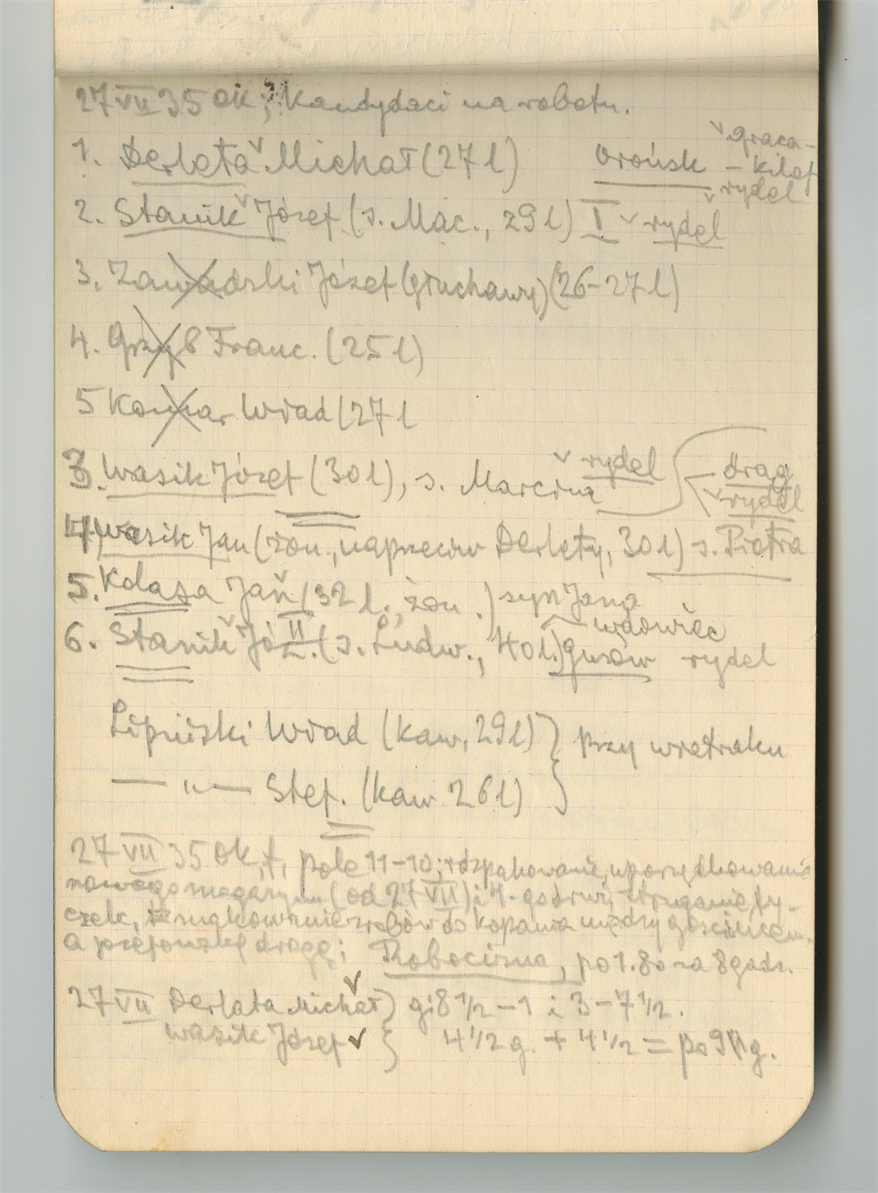 27 VII 35 Ok; Kandydaci na robotn.
1. Derlata Michał (27 l) Orońsk – graca – kilof
rydel
2. Stanik Józef (s. Mac., 29 l) I rydel
3. Zawadzki Józef (głuchawy) (26–27 l)
4. Grzyb Franc. (25 l)
5 Komar Wład (27 l
3. Wasik Józef (30 l), s. Marcina rydel drąg
rydel
4. Wasik Jan (żon., naprzeciw Derlaty, 30 l) s. Piotra
5. Kolasa Jan (32 l., żon.) syn Jana
wdowiec
6. Stanik Józ. II (s. Ludw., 40 l.) Gusów rydel
Lipiński Wład (kaw, 29 l) } przy wiatraku
— „ — Stef. (kaw 26 l)
27 VII 35 Ok, pole 11–10; rozpakowanie, uporządkowanie
nowego magazynu (od 27 VII) i 4. godziny struganie ty-
czek, między gościńcem
a drogą; Robocizna, po 1.80 za 8 godz.
27 VII Derlata Michał } g: 8 1/2 – 1 i 3 – 7 1/2.
Wasik Józef } 4 1/2 g. + 4 1/2 = po 9 g.